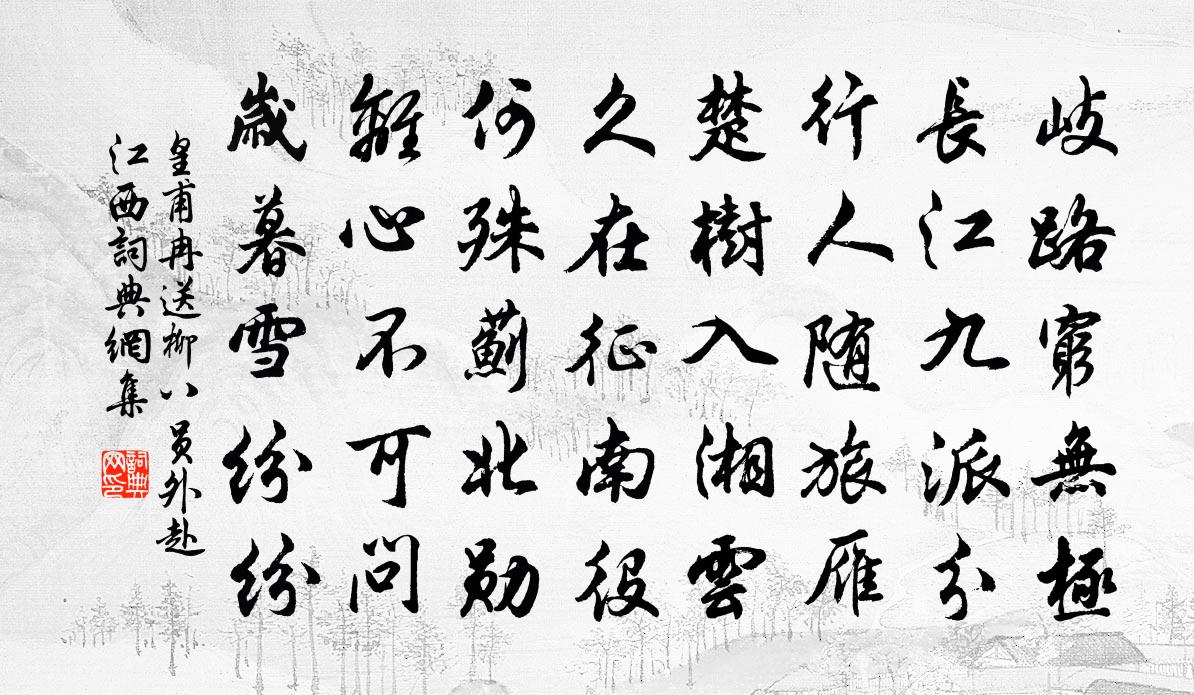 岐路窮無極
長江九派分
行人随旅雁
楚樹入湘雲
久在征南役
何殊薊北勛
離心不可問
歲暮雪紛紛
皇甫冉送柳八員外赴
江西詞典網集
詞典
网印